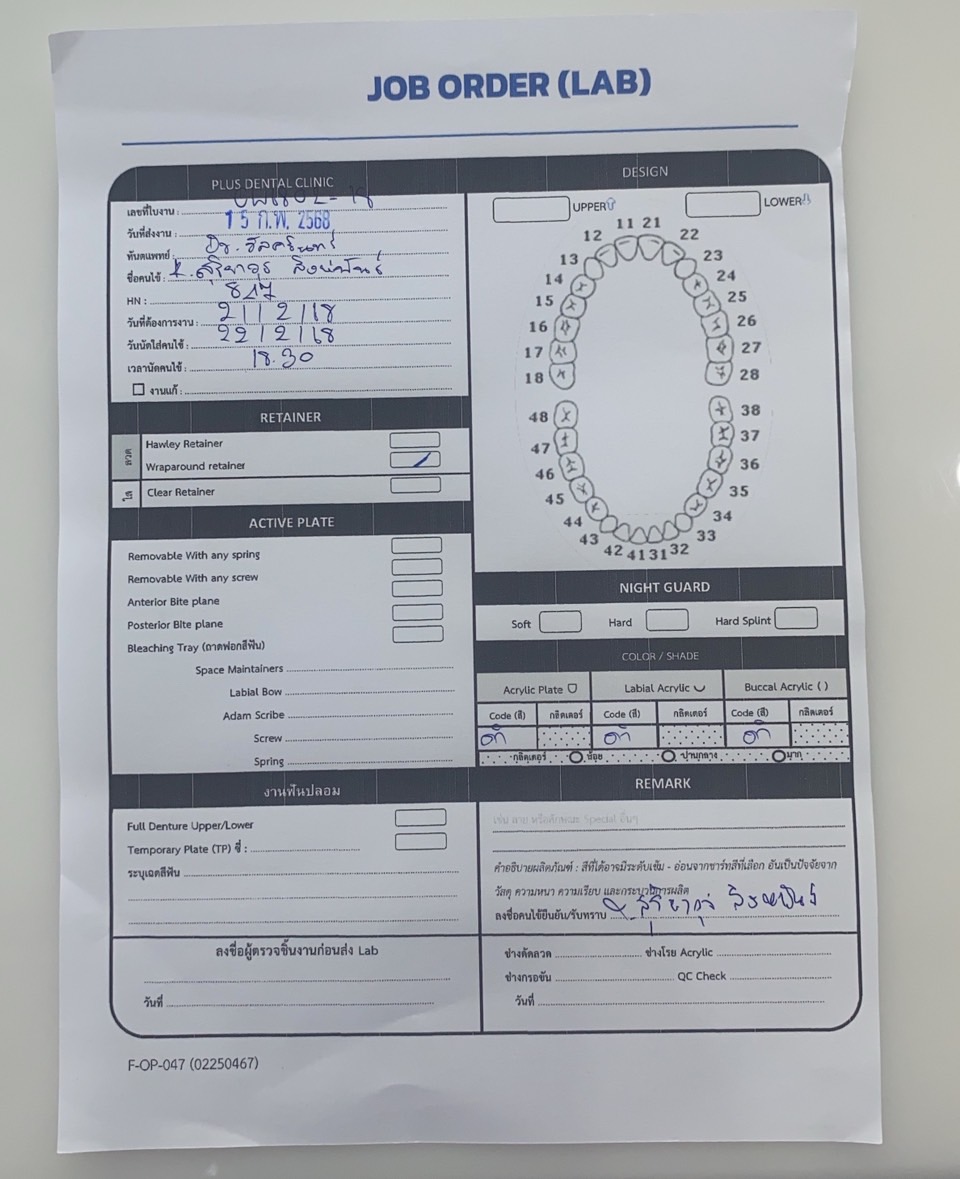 JOB ORDER (LAB)
PLUS DENTAL CLINIC
เลขที่ใบงาน :
วันที่ส่งงาน : 15 ก.พ. 2568
ทันตแพทย์ : Dr.
ชื่อคนไข้ :
HN : 817
วันที่ต้องการงาน : 21/2/68
วันนัดใส่คนไข้ : 22/2/68
เวลานัดคนไข้ : 18.30
งานแก้ :
RETAINER
ลวด
Hawley Retainer
Wraparound retainer
ใส
Clear Retainer
ACTIVE PLATE
Removable With any spring
Removable With any screw
Anterior Bite plane
Posterior Bite plane
Bleaching Tray (ถาดฟอกสีฟัน)
Space Maintainers
Labial Bow
Adam Scribe
Screw
Spring
งานฟันปลอม
Full Denture Upper/Lower
Temporary Plate (TP) ซี่ :
ระบุเฉดสีฟัน
ลงชื่อผู้ตรวจชิ้นงานก่อนส่ง Lab
วันที่
DESIGN
UPPER LOWER
11 21
12 22
13 23
14 24
15 25
16 26
17 27
18 28
48 38
47 37
46 36
45 35
44 34
43 33
42 41 31 32
NIGHT GUARD
Soft Hard Hard Splint
COLOR / SHADE
Acrylic Plate Labial Acrylic Buccal Acrylic ( )
Code (สี) กลิตเตอร์ Code (สี) กลิตเตอร์ Code (สี) กลิตเตอร์
กลิตเตอร์ น้อย ปานกลาง มาก
REMARK
เช่น ลาย หรือลักษณะ Special อื่นๆ
คำอธิบายผลิตภัณฑ์ : สีที่ได้อาจมีระดับเข้ม - อ่อนจากชาร์ทสีที่เลือก อันเป็นปัจจัยจาก
วัสดุ ความหนา ความเรียบ และกระบวนการผลิต
ลงชื่อคนไข้ยืนยัน/รับทราบ
ช่างดัดลวด ช่างโรย Acrylic
ช่างกรอขัน QC Check
วันที่
F-OP-047 (02250467)